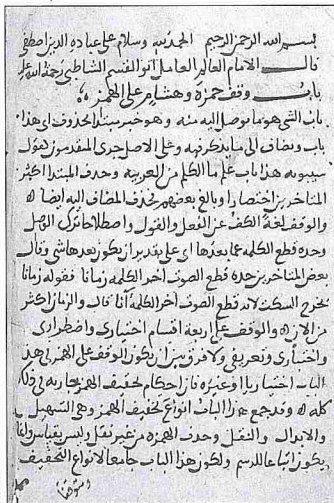 بسم الله الرحمن الرحيم الحمد لله وسلام على عباده الذين اصطفى
قال الامام العالم العامل ابو القسم الشاطبي رحمة الله عليه
باب وقف حمزة وهشام على الهمز
باب الشي هو ما توصل اليه منه وهو خبر مبتدا محذوف اي هذا
باب ويضاف الى ما يذكر فيه وعلى الاصل جرى المتقدمون كقول
سيبويه هذا باب علم ما الكلم من العربية وحذف المبتدا اكثر
المتاخرين اختصارا وبالغ بعضهم بحذف المضاف اليه ايضا
والوقف لغة الكف عن الفعل والقول واصطلاحا ترك الوصل
وحده قطع الكلمة عما بعدها اي على تقدير ان يكون بعدها شي وقال
بعض المتاخرين حده قطع الصوت اخر الكلمة زمانا فقوله زمانا
يخرج السكت لانه قطع الصوت اخر الكلمة آنا قال والزمان اكثر
من الان والوقف على اربعة اقسام اختياري واضطراري
واختباري وتعريفي ولا فرق بين ان يكون الوقف على الهمز في هذا
الباب اختياريا او غيره فان احكام تخفيف الهمز جارية في ذلك
كله وقد جمع هذا الباب انواع تخفيف الهمز وهي التسهيل
والابدال والنقل وحذف الهمزة من غير نقل وليس بقياس وانما
يكون اتباعا للرسم ولكون هذا الباب جامعا لانواع التخفيف